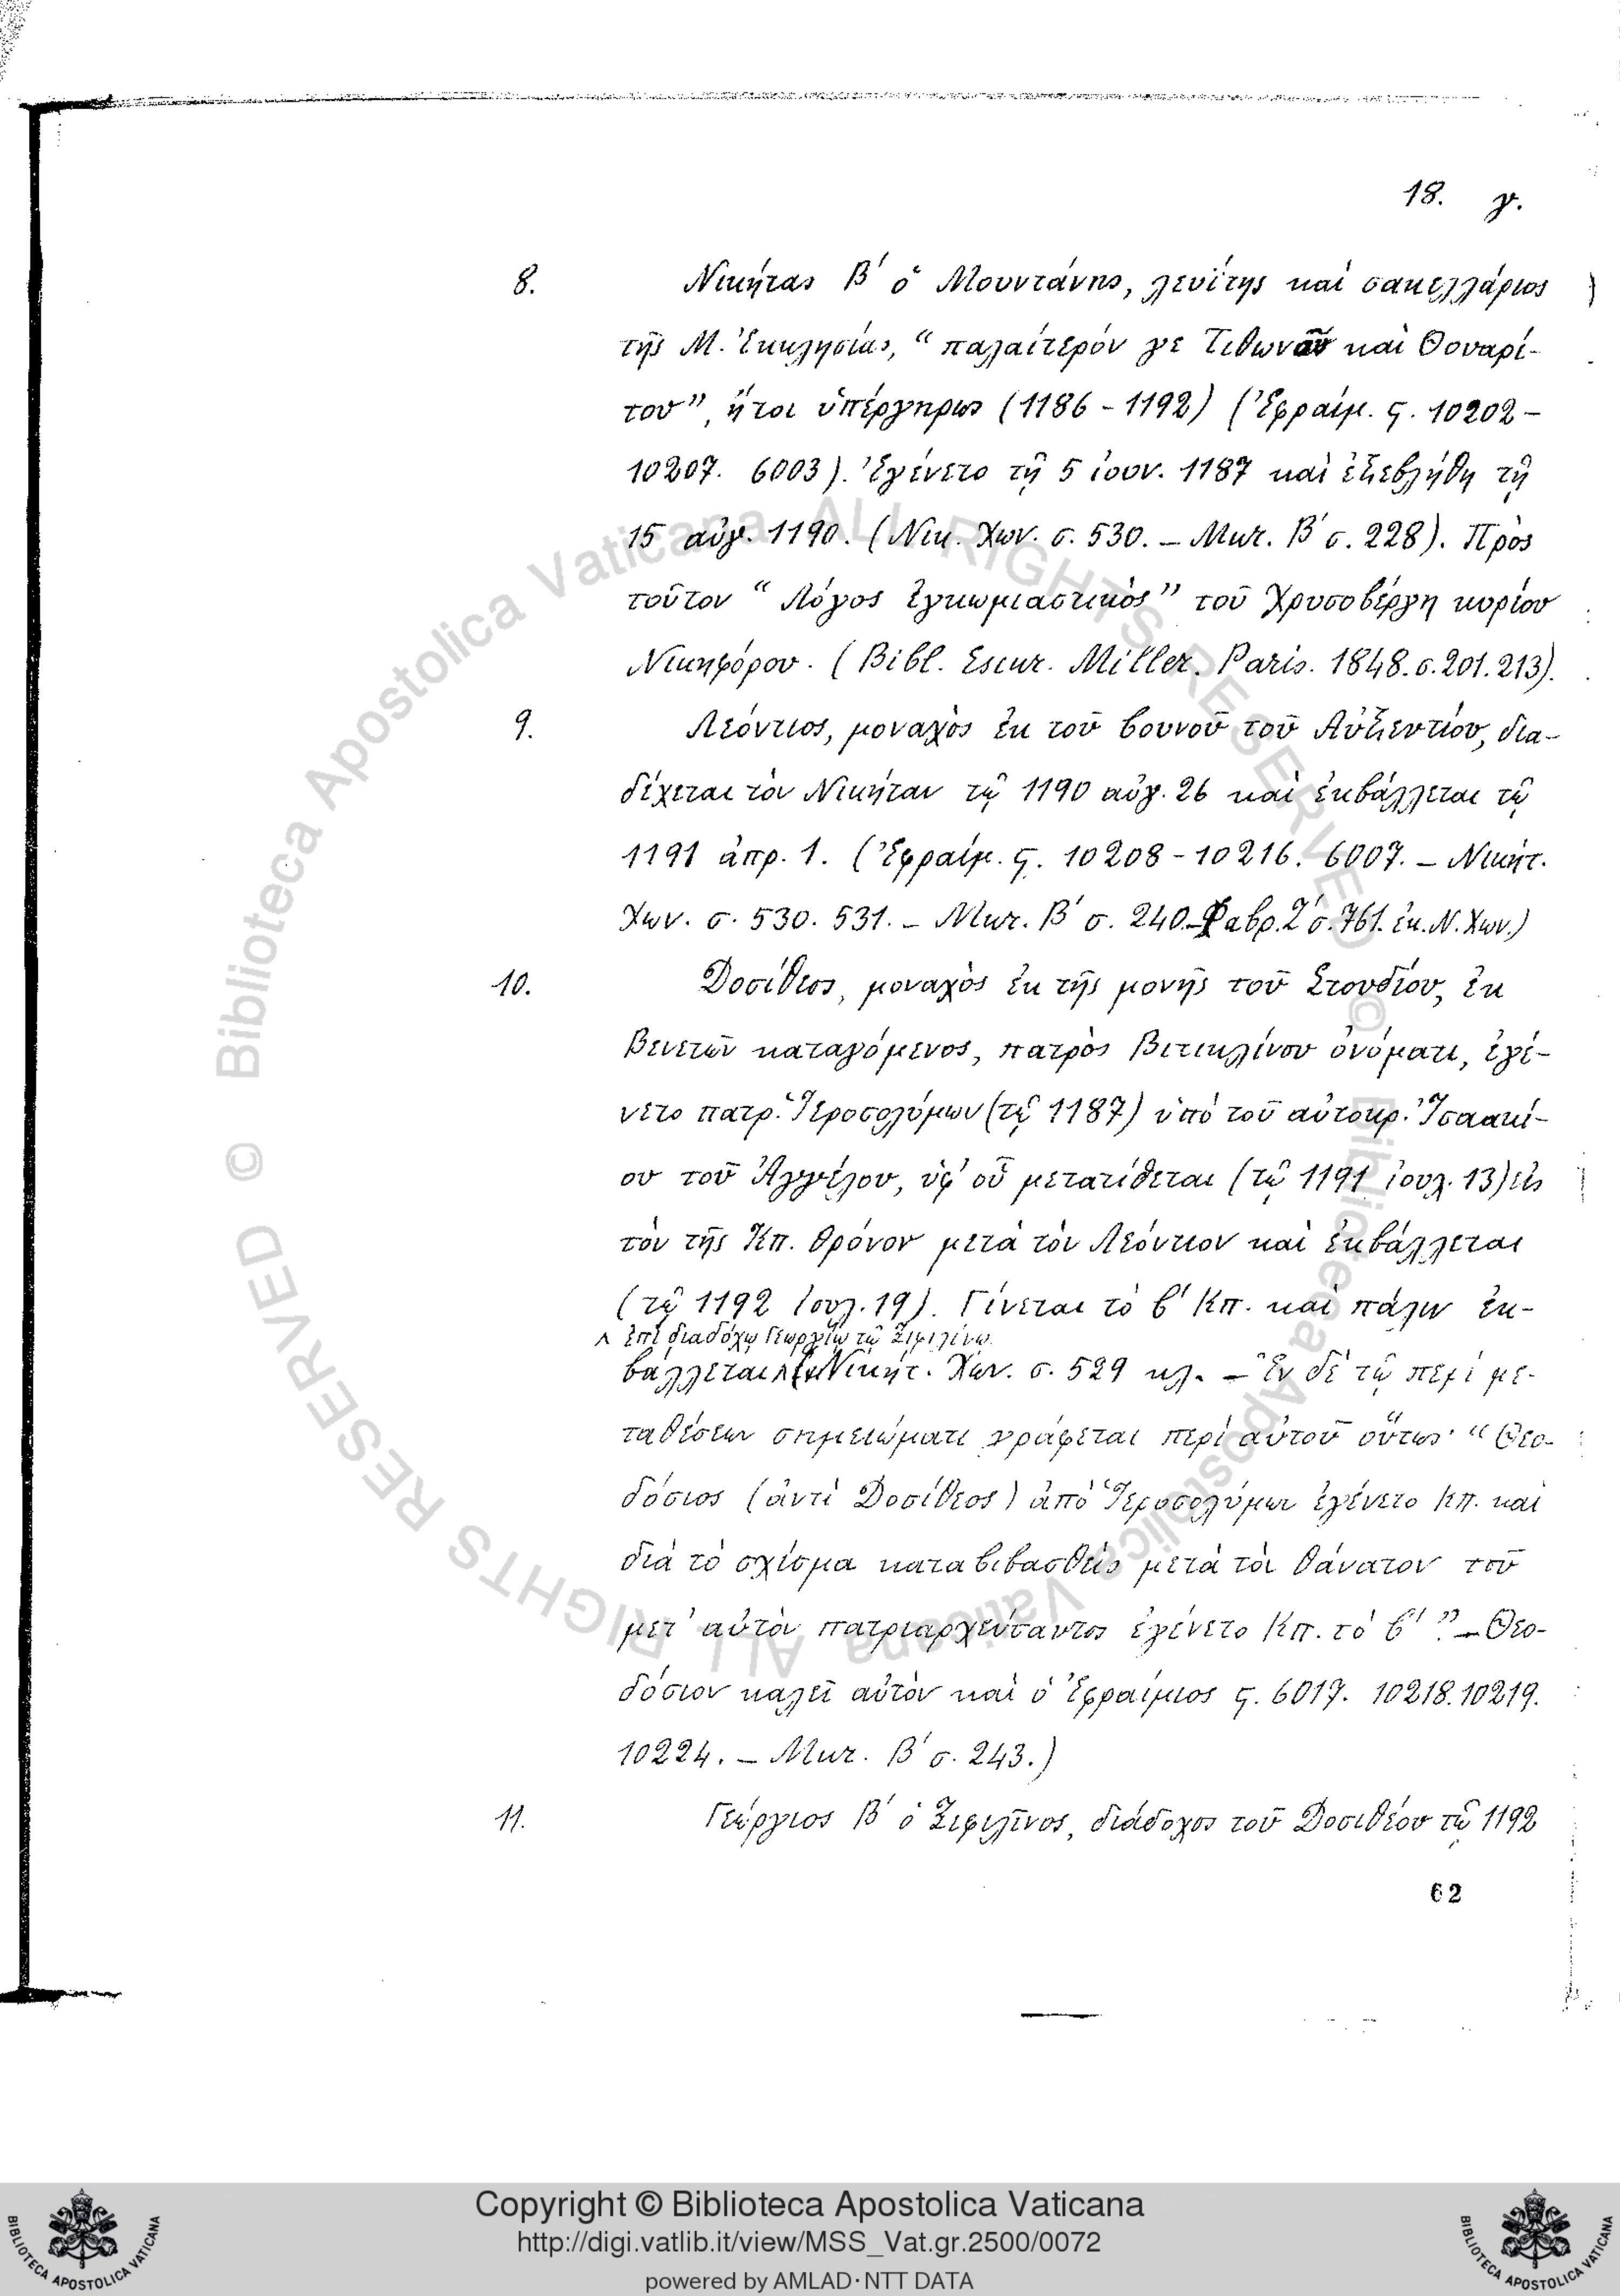 18. γ.
8. Νικήτας Β΄ ὁ Μουντάνης, λευΐτης καὶ σακελλάριος
τῆς Μ. Ἐκκλησίας, “ παλαίτερόν γε Τιθωνοῦ καὶ Θουαρί-
του”, ἤτοι ὑπέργηρως (1186 - 1192) (Ἐφραίμ. ς. 10202 -
10207. 6003). Ἐγένετο τῇ 5 ἰουν. 1187 καὶ ἐξεβλήθη τῇ
15 αὐγ. 1190. (Νικ. Χων. σ. 530. - Μητ. Β΄ σ. 228). Πρὸς
τοῦτον “ Λόγος ἐγκωμιαστικὸς” τοῦ Χρυσοβέργη κυρίου
Νικηφόρου. (Bibl. Escur. Miller. Paris. 1848. σ. 201. 213).
9. Λεόντιος, μοναχὸς ἐκ τοῦ βουνοῦ τοῦ Αὐξεντίου, δια-
δέχεται τὸν Νικήταν τῷ 1190 αὐγ. 26 καὶ ἐκβάλλεται τῷ
1191 ἀπρ. 1. (Ἐφραίμ. ς. 10208 - 10216. 6007. - Νικήτ.
Χων. σ. 530. 531. - Μητ. Β΄ σ. 240. - Φαβρ. Ζ΄ σ. 761. ἐκ. Ν. Χων.)
10. Δοσίθεος, μοναχὸς ἐκ τῆς μονῆς τοῦ Στουδίου, ἐκ
Βενετῶν καταγόμενος, πατρὸς Βιτικλίνου ὀνόματι, ἐγέ-
νετο πατρ. Ἱεροσολύμων (τῷ 1187) ὑπὸ τοῦ αὐτοκρ. Ἰσαακί-
ου τοῦ Ἀγγέλου, ὑφ᾽ οὗ μετατίθεται (τῷ 1191 ἰουλ. 13) εἰς
τὸν τῆς Κπ. θρόνον μετὰ τὸν Λεόντιον καὶ ἐκβάλλεται
(τῷ 1192 ἰουλ. 19). Γίνεται τὸ β΄ Κπ. καὶ πάλιν ἐκ-
^ ἐπὶ διαδόχῳ Γεωργίῳ τῷ Ξιφιλίνῳ.
βάλλεται ^ (Νικήτ. Χων. σ. 529 κλ. - Ἐν δὲ τῷ περὶ με-
ταθέσεων σημειώματι γράφεται περὶ αὐτοῦ οὕτως· “ Θεο-
δόσιος (ἀντὶ Δοσίθεος) ἀπὸ Ἱεροσολύμων ἐγένετο Κπ. καὶ
διὰ τὸ σχίσμα καταβιβασθεὶς μετὰ τὸν θάνατον τοῦ
μετ᾽ αὐτὸν πατριαρχεύσαντος ἐγένετο Κπ. τὸ β΄”. - Θεο-
δόσιον καλεῖ αὐτὸν καὶ ὁ Ἐφραίμιος ς. 6017. 10218. 10219.
10224. - Μητ. Β΄ σ. 243.)
11. Γεώργιος Β΄ ὁ Ξιφιλῖνος, διάδοχος τοῦ Δοσιθέου τῷ 1192
62
© Biblioteca Apostolica Vaticana ALL RIGHTS RESERVED © Biblioteca Apostolica Vaticana ALL RIGHTS RESERVED
Copyright © Biblioteca Apostolica Vaticana
http://digi.vatlib.it/view/MSS_Vat.gr.2500/0072
powered by AMLAD·NTT DATA
BIBLIOTECA APOSTOLICA VATICANA
BIBLIOTECA APOSTOLICA VATICANA